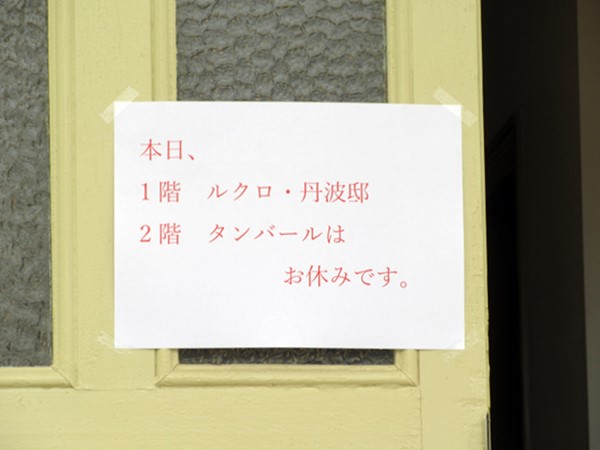 本日、
1階　ルクロ・丹波邸
2階　タンバールは
お休みです。